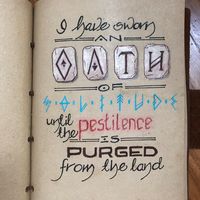 I have sworn
AN
OATH
OF
SOLITUDE
until
the pestilence
IS
PURGED
from the land